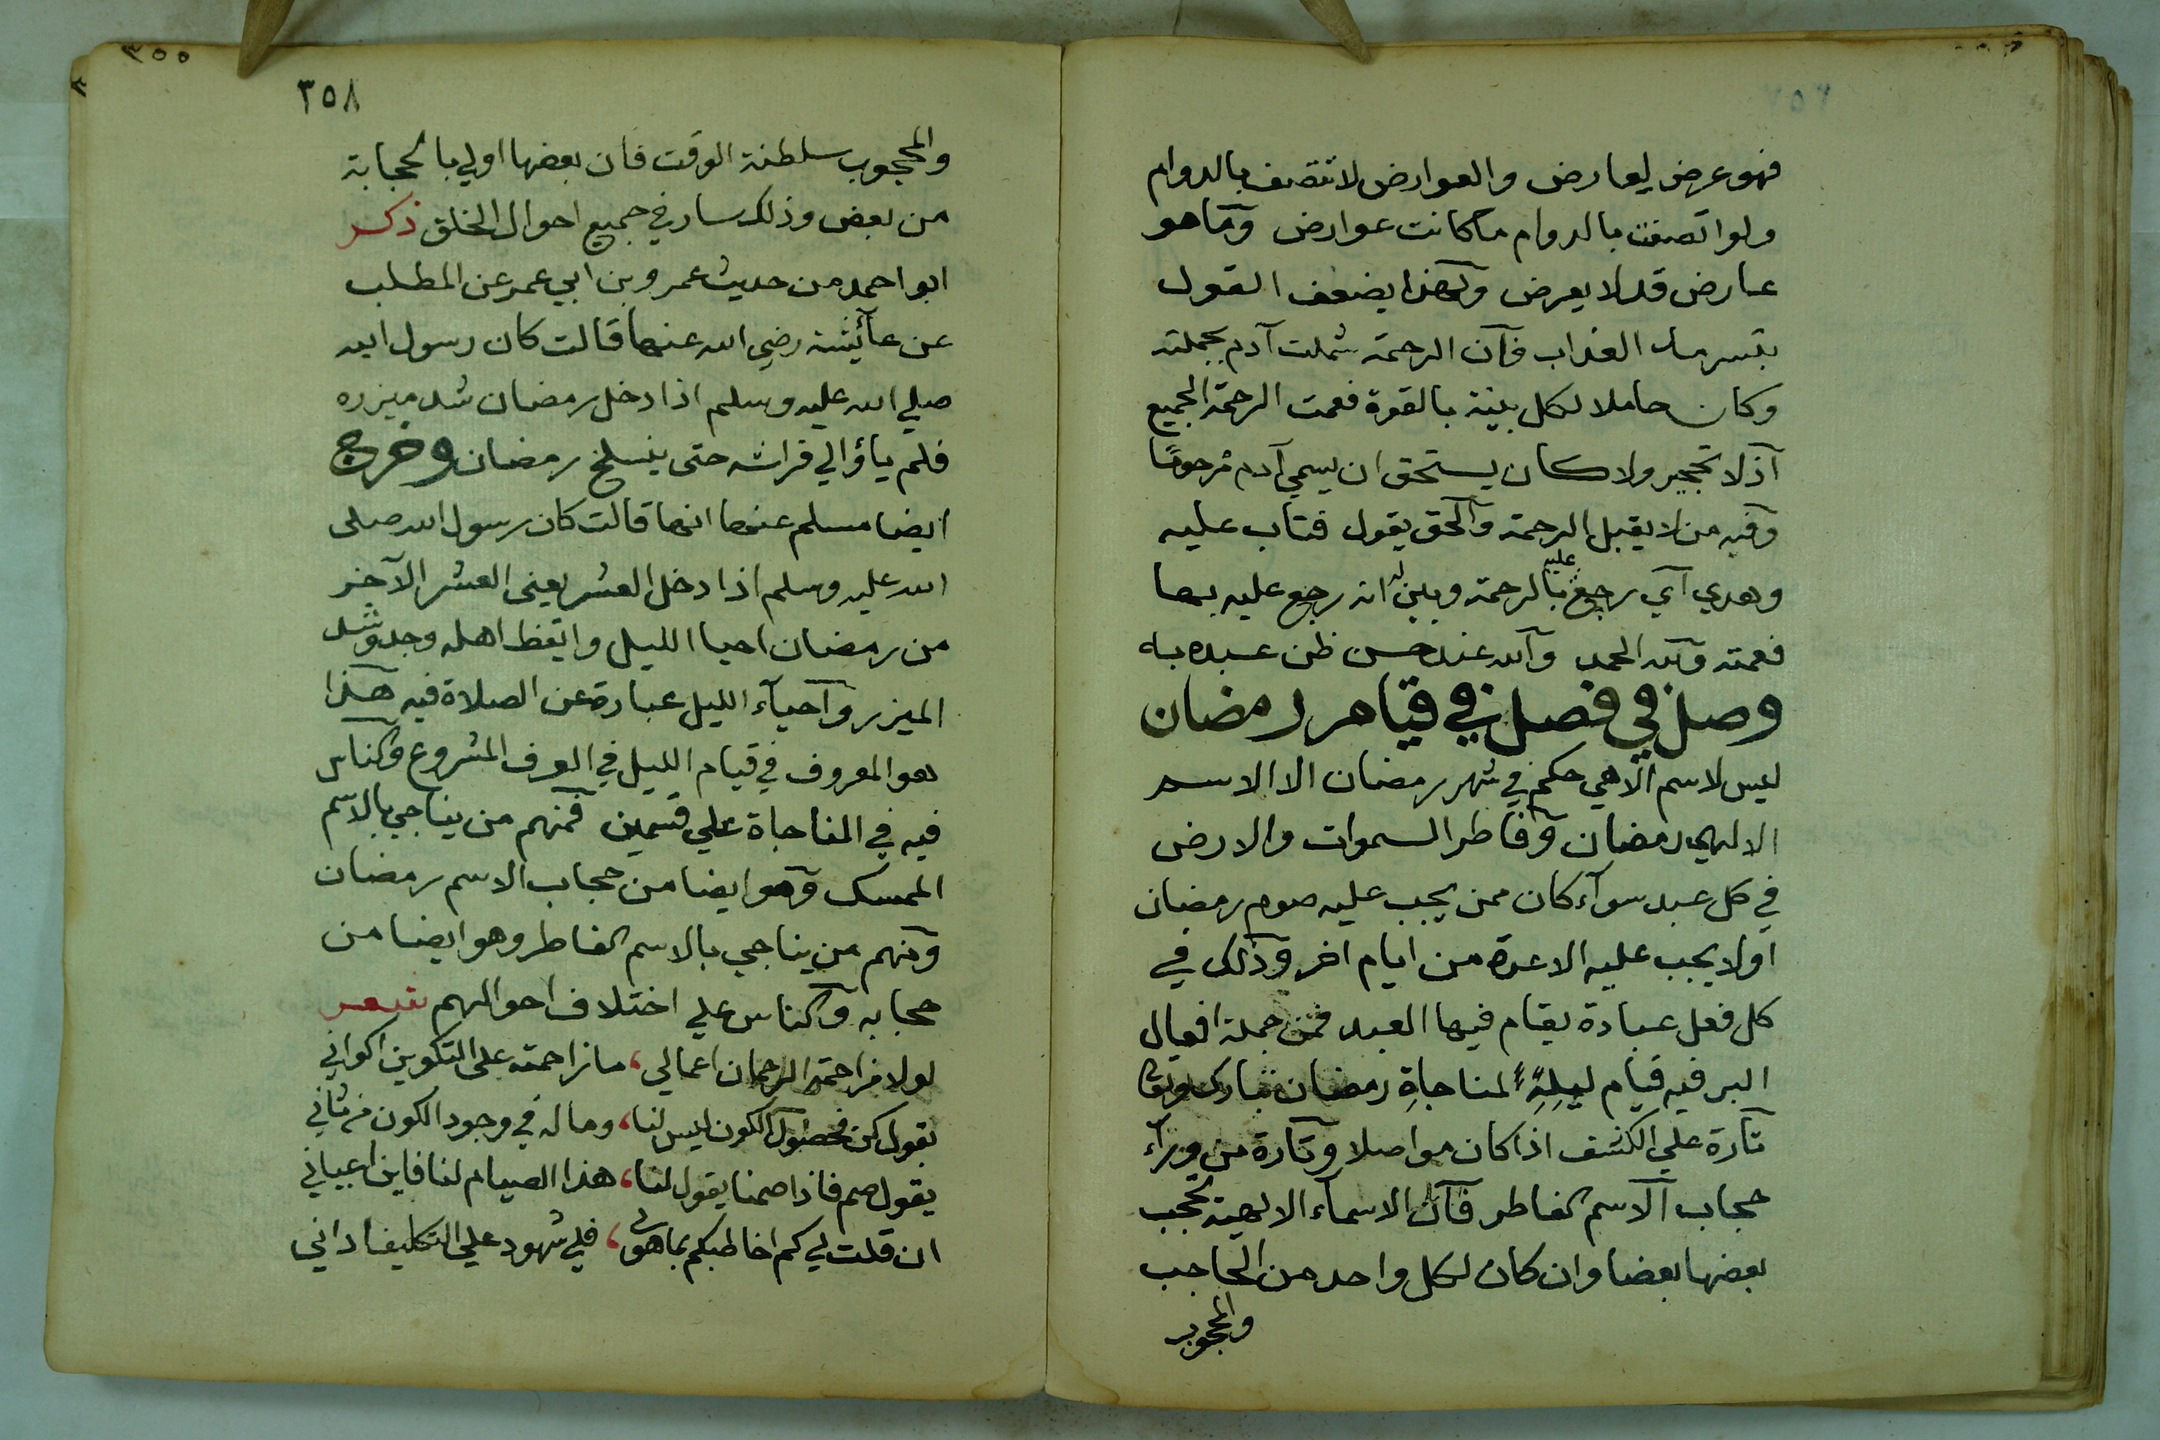 فهو عرض لعارض والعوارض لا تتصف بالدوام
ولو اتصفت بالدوام ما كانت عوارض وما هو
عارض قد لا يعرض ولهذا يضعف القول
بتسرمد العذاب فان الرحمة شملت آدم بجملته
وكان حاملا لكل بنيه بالقوة فعمت الرحمة الجميع
اذ لا تحجير ولا كان يستحق ان يسمي آدم مرحومًا
وفيه من لا يقبل الرحمة والحق يقول فتاب عليه
وهدي اي رجع عليه بالرحمة وبين له انه رجع عليه بها
فعمته ولله الحمد والله عند حسن ظن عبده به
وصل في فصل في قيام رمضان
ليس لاسم الاهي حكم في شهر رمضان الا الاسم
الالهي رمضان وفاطر السموات والارض
في كل عبد سوآء كان ممن يجب عليه صوم رمضان
اولا يجب عليه الا عدة من ايام اخر وذلك في
كل فعل عبادة يقام فيها العبد فمن جملة افعال
البر فيه قيام ليله لمناجاة رمضان تبارك وتعالى
تارة علي الكشف اذا كان مواصلا وتارة من ورآء
حجاب الاسم الفاطر فان الاسمآء الالهية تحجب
بعضها بعضا وان كان لكل واحد من الحاجب
والمحجوب
٣٥٥
٣٥٨
والمحجوب سلطنة الوقت فان بعضها اولي بالحجابة
من بعض وذلك سار في جميع احوال الخلق ذكر
ابو احمد من حديث عمرو بن ابي عمر عن المطلب
عن عآئشة رضي الله عنها قالت كان رسول الله
صلي الله عليه وسلم اذا دخل رمضان شد ميزره
فلم ياؤ الي فراشه حتى ينسلخ رمضان وخرج
ايضا مسلم عنها انها قالت كان رسول الله صلى
الله عليه وسلم اذا دخل العشر يعنى العشر الآخر
من رمضان احيا الليل وايقظ اهله وجد وشد
الميزر واحيآء الليل عبارة عن الصلاة فيه هكذا
هو المعروف في قيام الليل في العرف المشروع والناس
فيه في المناجاة علي قسمين فمنهم من يناجي بالاسم
الممسك وهو ايضا من حجاب الاسم رمضان
ومنهم من يناجي بالاسم الفاطر وهو ايضا من
حجابه والناس علي اختلاف احوالهم شعر
لولا مزاحمة الرحمان اعمالي، ما زاحمته على التكوين اكواني
بقول كن فحصول الكون ليس لنا، وما له في وجود الكون من ثاني
يقول صم فاذا صمنا يقول لنا، هذا الصيام لنا فاين اعياني
ان قلت لي كم اخاطبكم بما هو لي، فلي شهود علي التكليف اداني